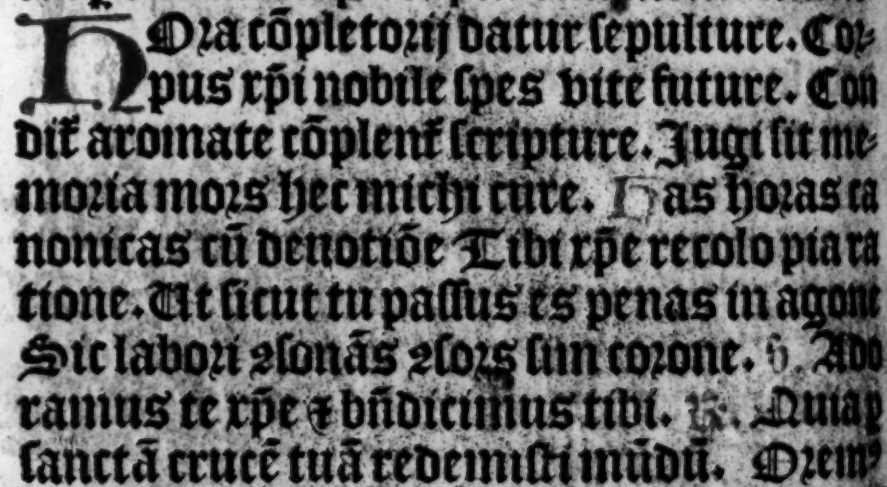 HOra cõpletorij datur sepulture. Cor⸗
pus xp̄i nobile spes vite future. Con
dit̃ aromate cõplent̃ scripture. Jugi sit me⸗
moria mors hec michi cure. Has horas ca
nonicas cũ deuotiõe Tibi xp̄e recolo pia ra
tione. Ut sicut tu passus es penas in agone
Sic labori ꝯsonãs ꝯsors sim corone. v̓. Ado
ramus te xp̄e ⁊ bñdicimus tibi. ℟. Quia p
sanctã crucẽ tuã redemisti mũdũ. Oremꝰ